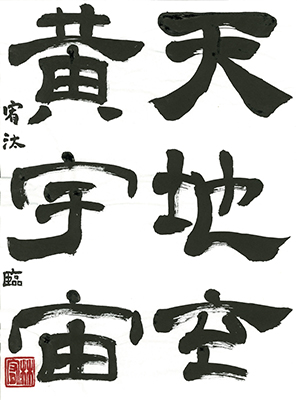 天地玄
黄宇宙
宥汰 臨